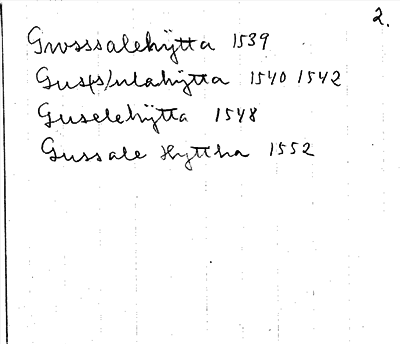 2.
Grosssalehÿtta 1539
Gus(s)ulahÿtta 1540 1542
Guselehÿtta 1548
Gussale Hyttha 1552